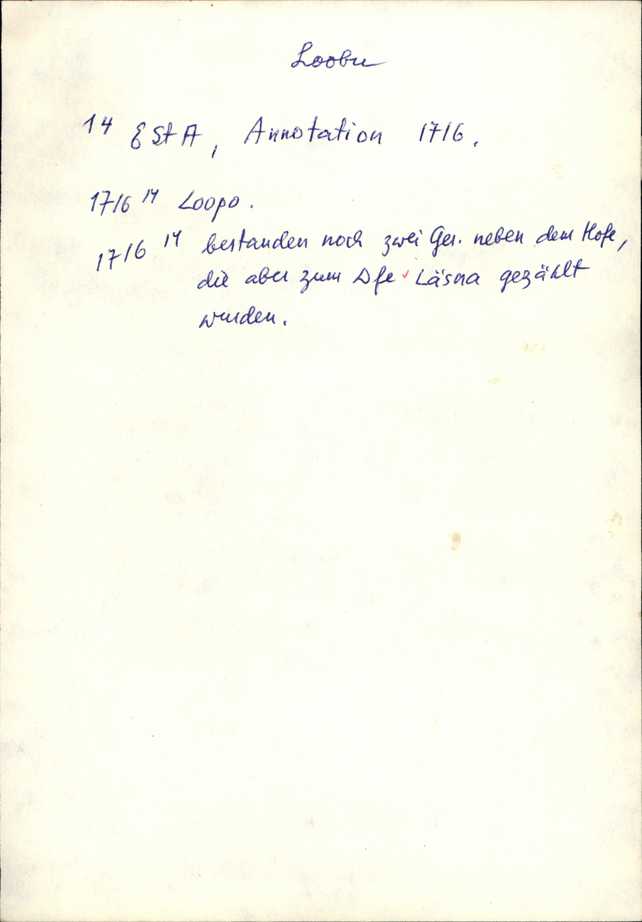 Loobu
14 EStA, Annotation 1716.
1716 14 Loopo.
1716 14 bestanden noch zwei Ges. neben dem Hofe,
die aber zum Dfe Läsna gezählt
wurden.